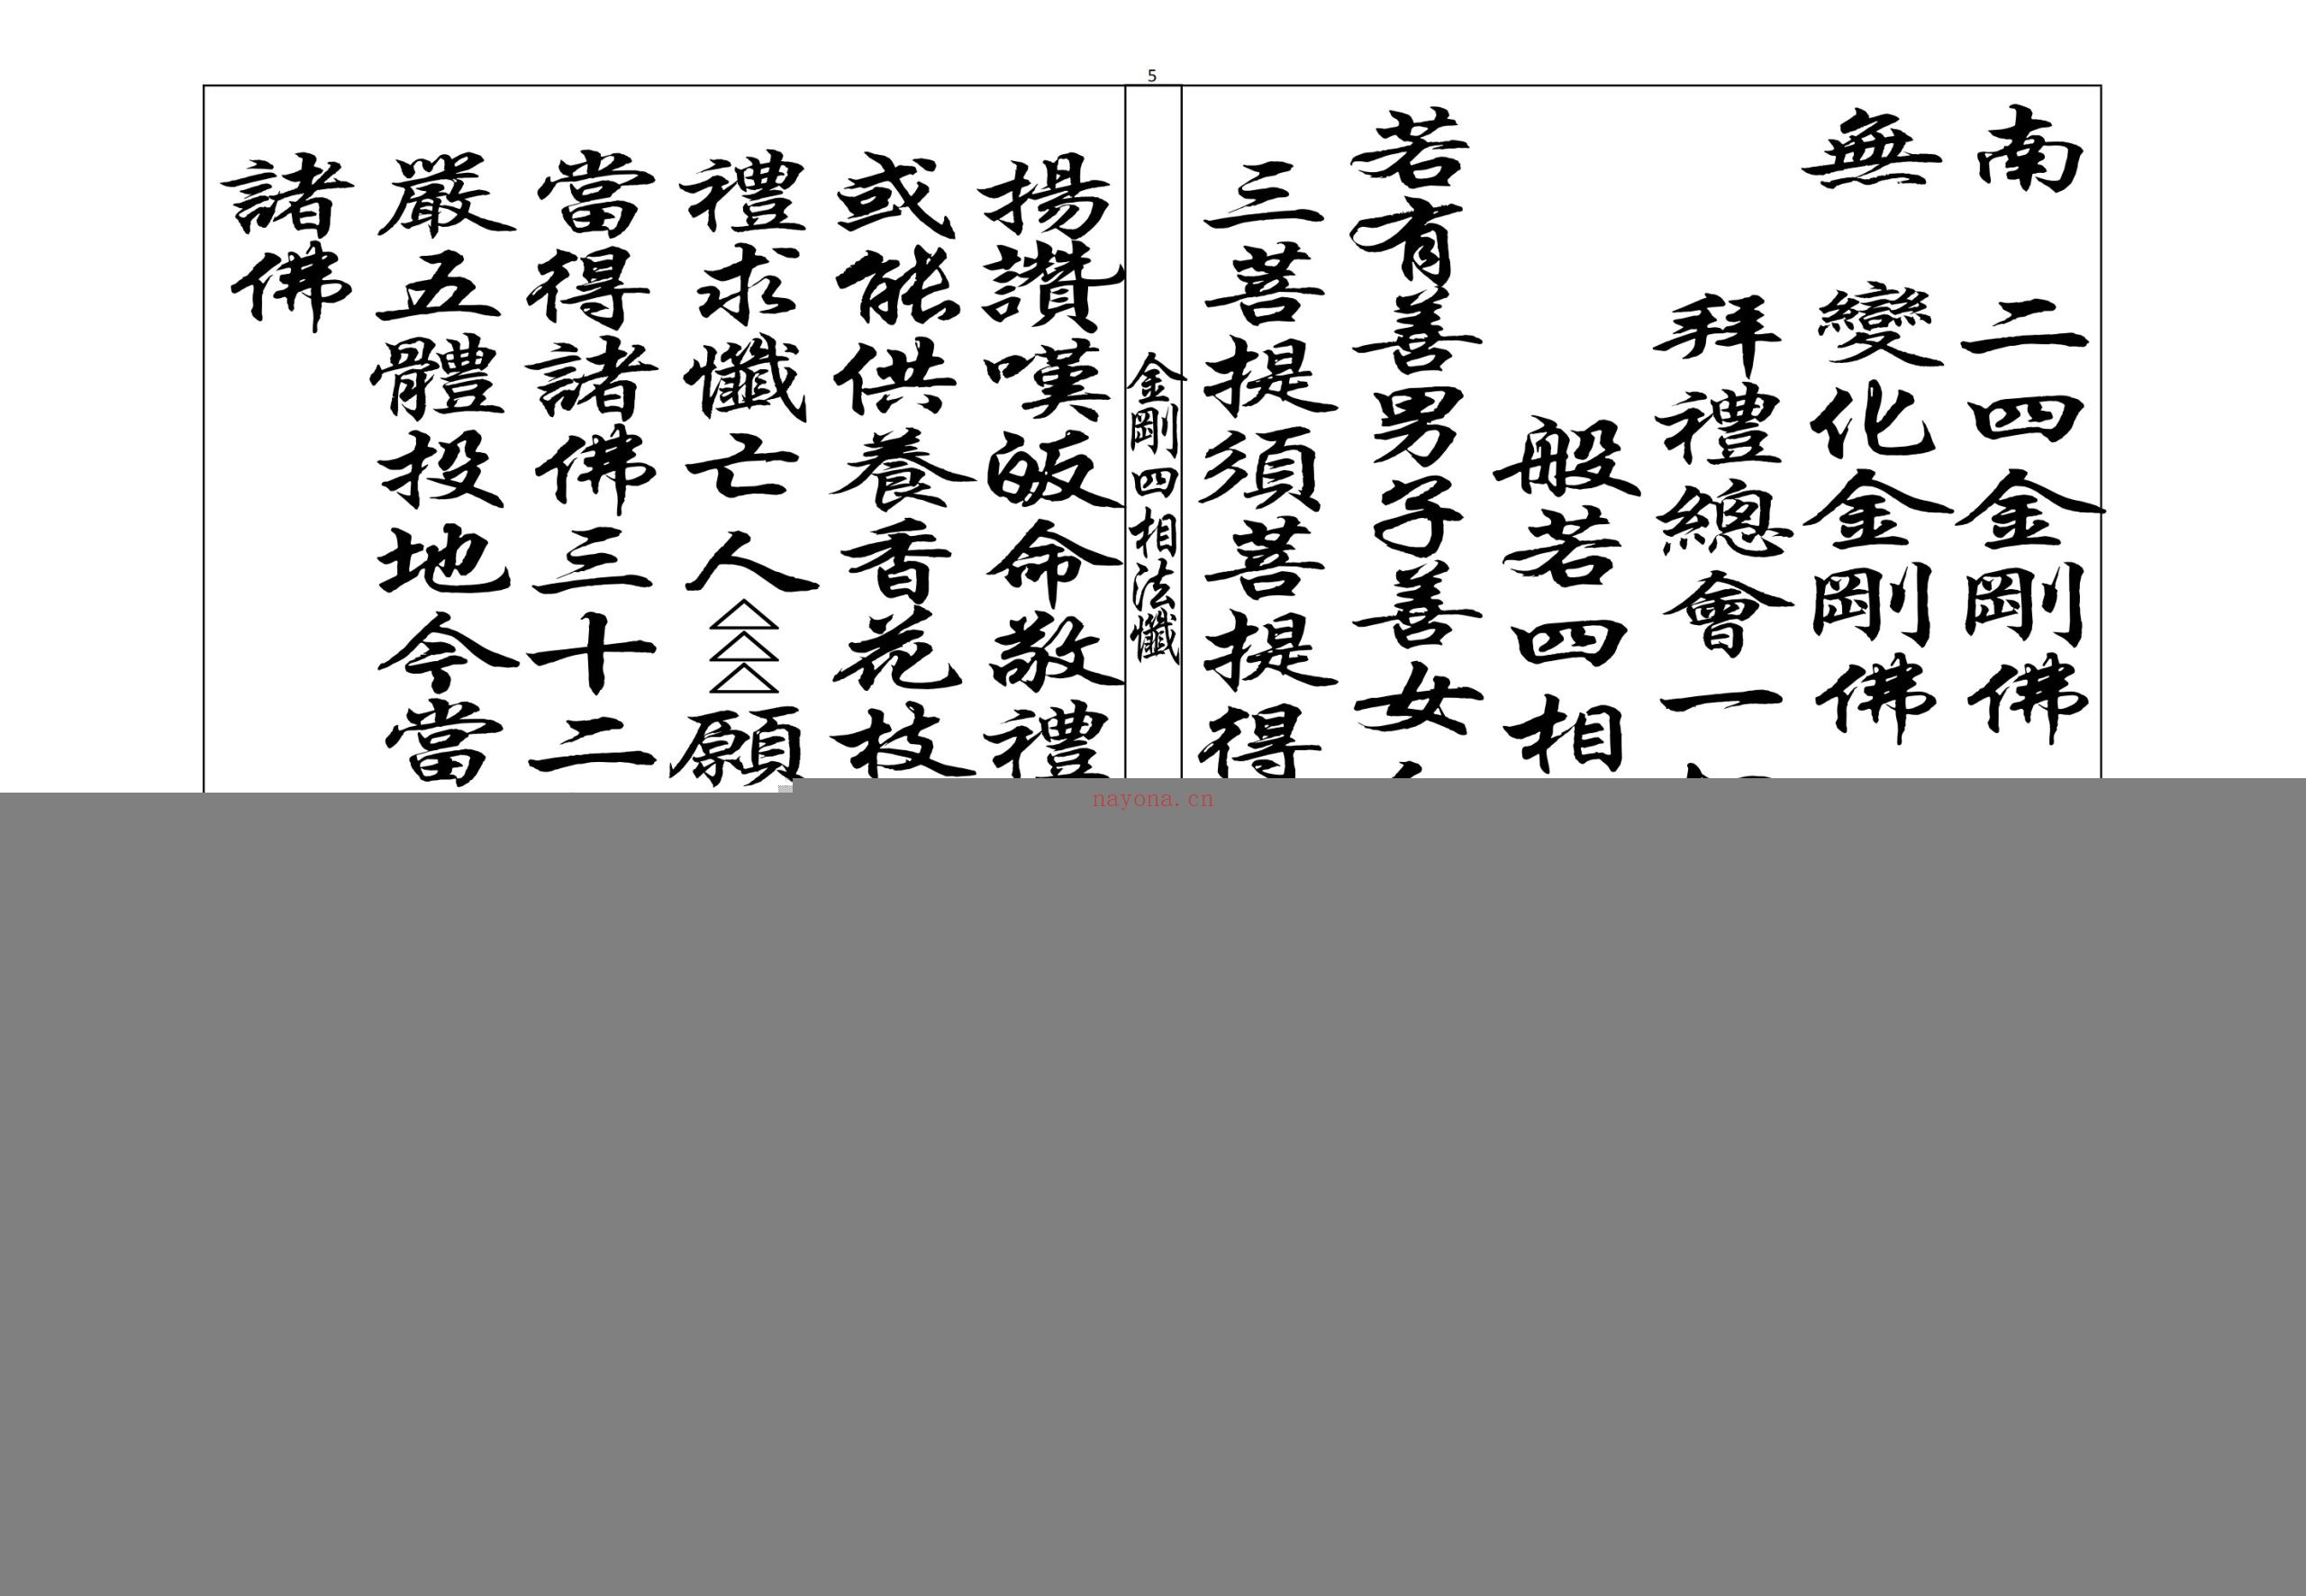 5
南二四金剛佛
無變化金剛佛
拜禮總會一
般若四相
若有善男子善女
三菩提須菩提得
金剛四相法懺
揚讚嘆皈命敬禮
或能供養香花枝
禮求懺亡人△△△願
當得諸佛三十二
嚴五體投地今當
諸佛
nayona.cn